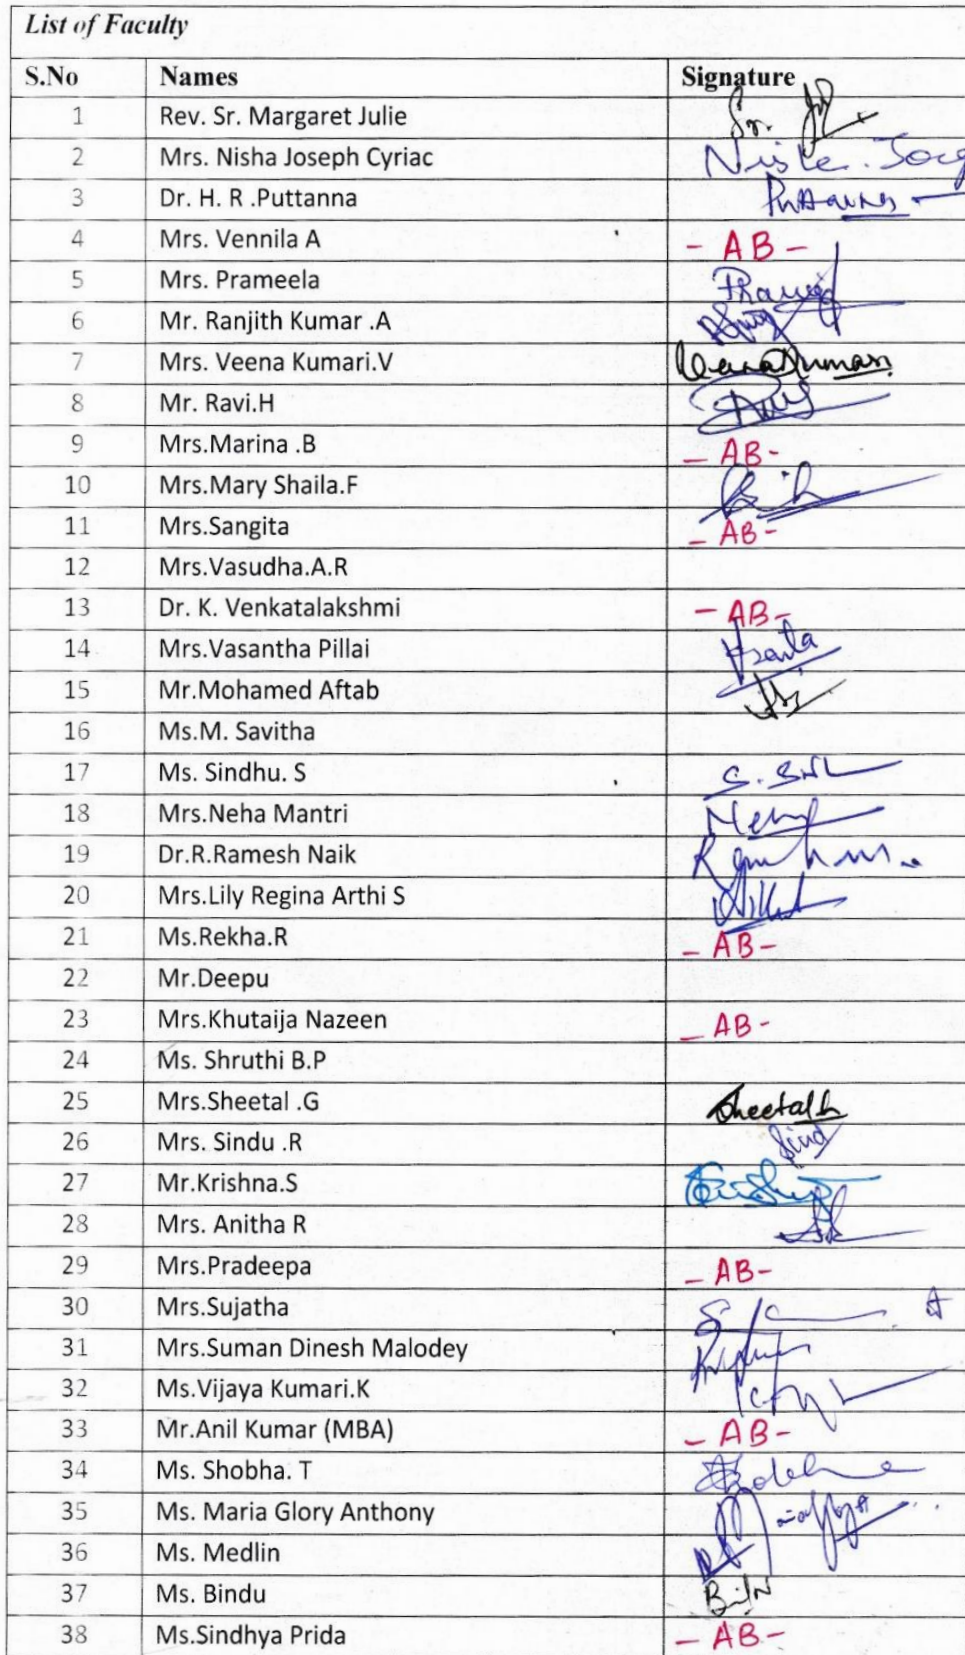 List of Faculty
S.No Names Signature
1 Rev. Sr. Margaret Julie Sr.
2 Mrs. Nisha Joseph Cyriac
3 Dr. H. R .Puttanna
4 Mrs. Vennila A - AB -
5 Mrs. Prameela
6 Mr. Ranjith Kumar .A
7 Mrs. Veena Kumari.V
8 Mr. Ravi.H
9 Mrs.Marina .B - AB -
10 Mrs.Mary Shaila.F
11 Mrs.Sangita - AB -
12 Mrs.Vasudha.A.R
13 Dr. K. Venkatalakshmi - AB -
14 Mrs.Vasantha Pillai
15 Mr.Mohamed Aftab
16 Ms.M. Savitha
17 Ms. Sindhu. S
18 Mrs.Neha Mantri
19 Dr.R.Ramesh Naik
20 Mrs.Lily Regina Arthi S
21 Ms.Rekha.R - AB -
22 Mr.Deepu
23 Mrs.Khutaija Nazeen - AB -
24 Ms. Shruthi B.P
25 Mrs.Sheetal .G
26 Mrs. Sindu .R
27 Mr.Krishna.S
28 Mrs. Anitha R
29 Mrs.Pradeepa - AB -
30 Mrs.Sujatha
31 Mrs.Suman Dinesh Malodey
32 Ms.Vijaya Kumari.K
33 Mr.Anil Kumar (MBA) - AB -
34 Ms. Shobha. T
35 Ms. Maria Glory Anthony
36 Ms. Medlin
37 Ms. Bindu
38 Ms.Sindhya Prida - AB -